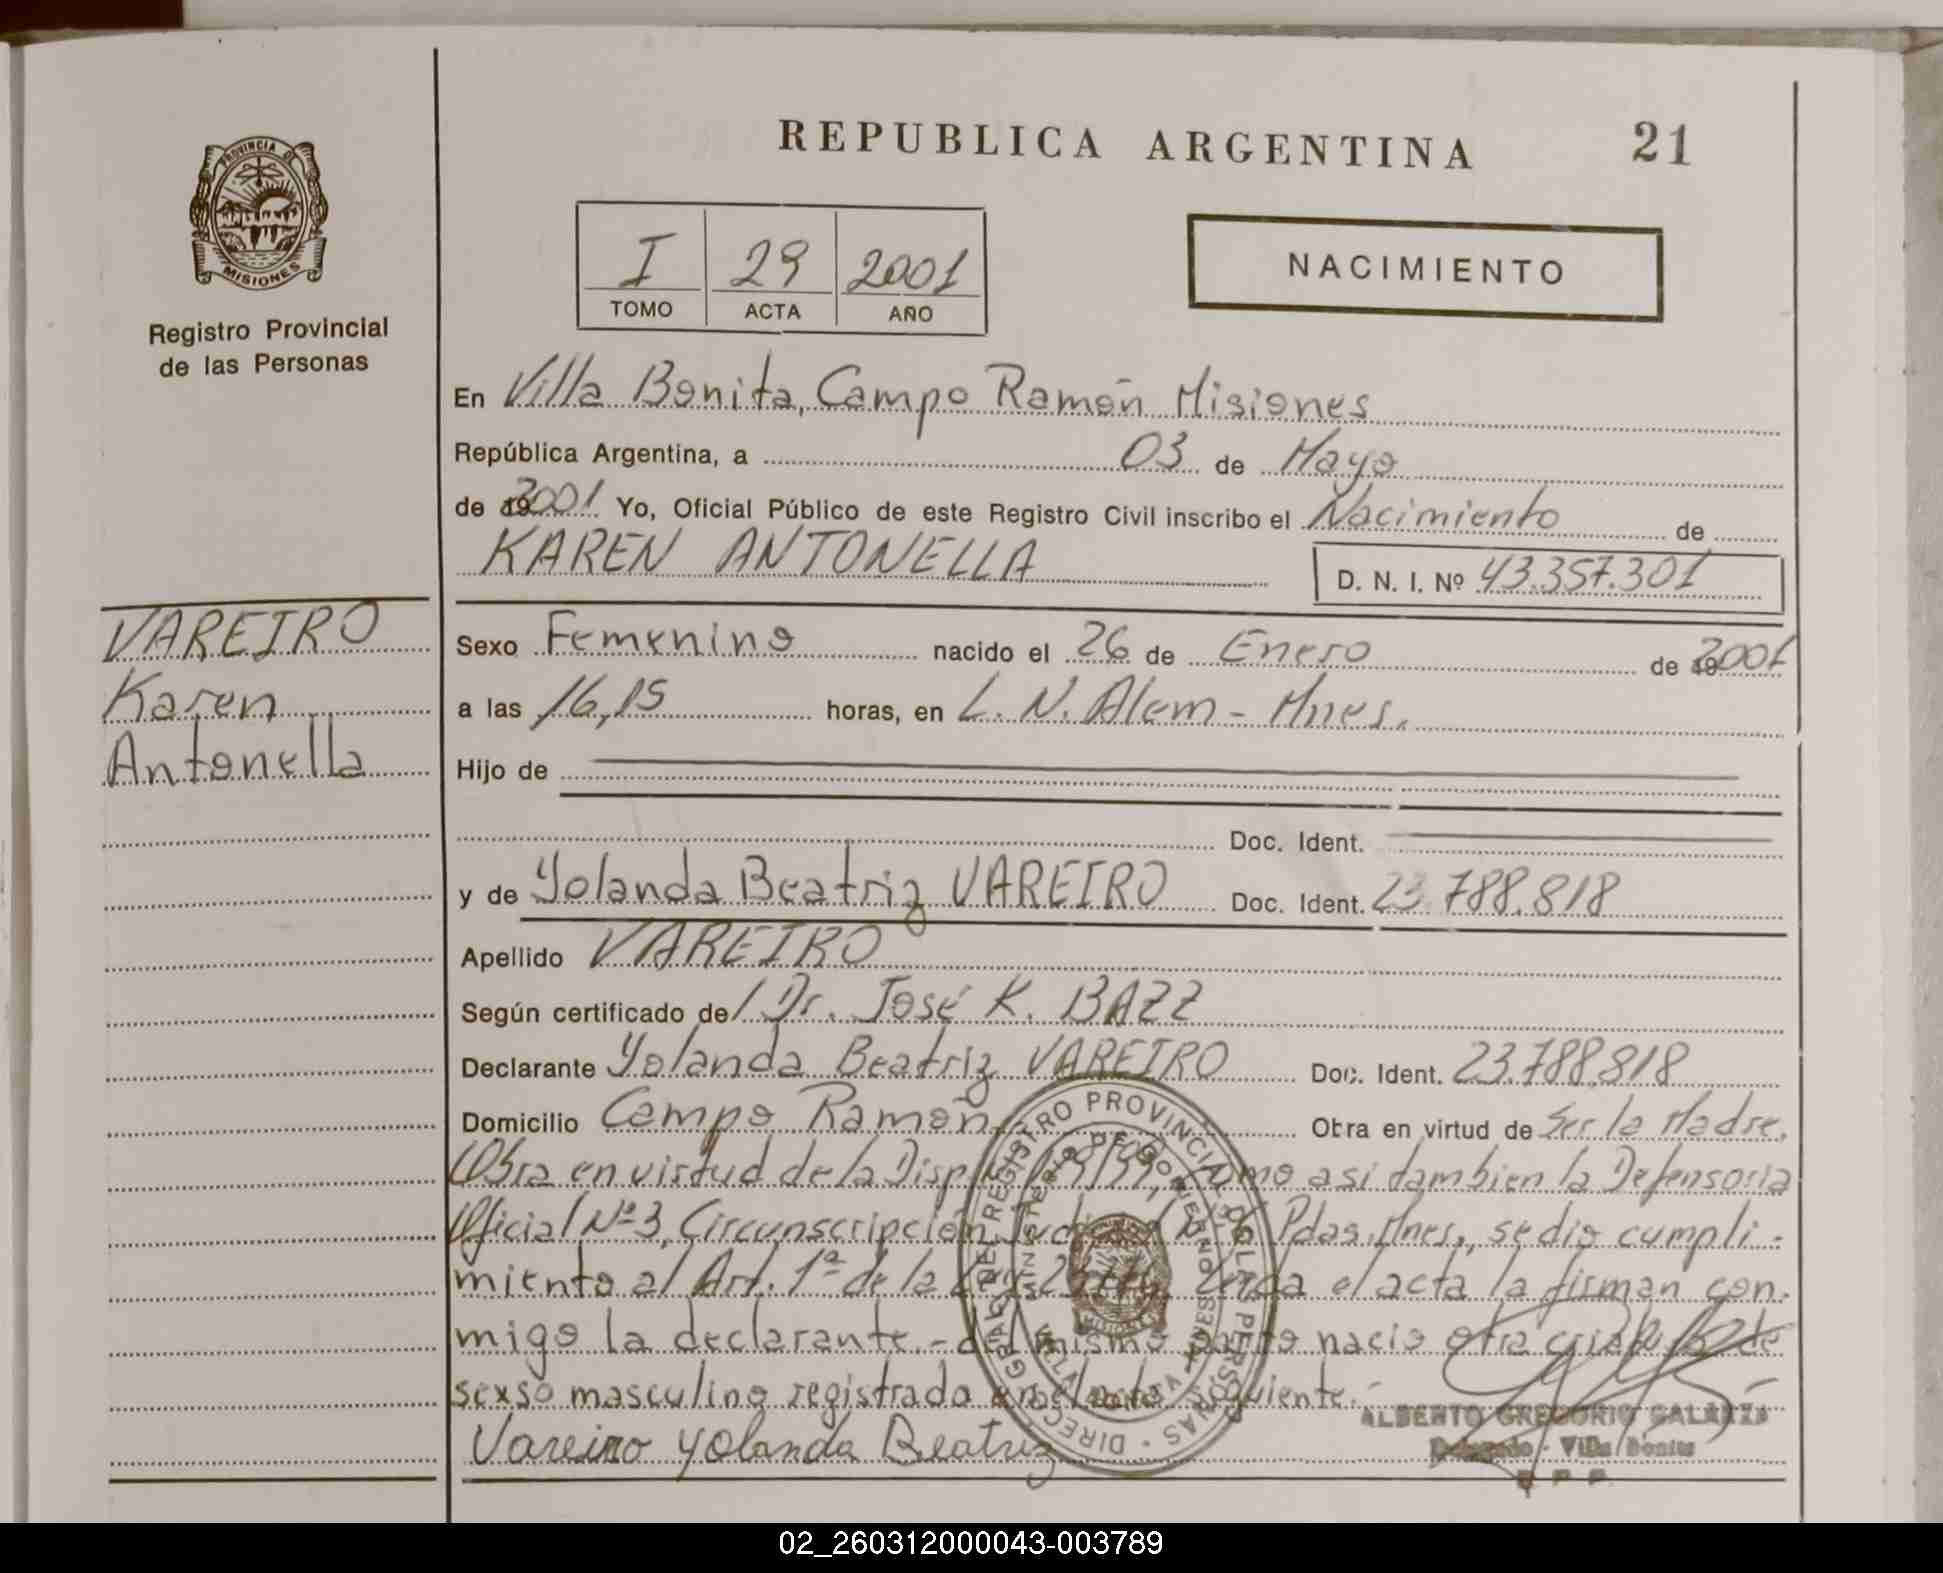 REPUBLICA ARGENTINA 21
PROVINCIA DE
MISIONES
Registro Provincial
de las Personas
I 29 2001
TOMO ACTA AÑO
NACIMIENTO
En Villa Bonita, Campo Ramón Misiones
República Argentina, a 03 de Mayo
de 2001 Yo, Oficial Público de este Registro Civil inscribo el Nacimiento de
KAREN ANTONELLA
D. N. I. Nº 43.357.301
VAREIRO
Karen
Antonella
Sexo Femenino nacido el 26 de Enero de 2001
a las 16,15 horas, en L. N. Alem - Mnes.
Hijo de
Doc. Ident.
y de Yolanda Beatriz VAREIRO Doc. Ident. 23.788.818
Apellido VAREIRO
Según certificado de/ Dr. José K. BAZZ
Declarante Yolanda Beatriz VAREIRO Doc. Ident. 23.788.818
Domicilio Campo Ramón Obra en virtud de Ser la Madre.
Obra en virtud de la Disp. como asi tambien la Defensoria
Oficial Nº 3, Circunscripción Pdas. Mnes., se dio cumpli-
miento al Art. 1º de la el acta la firman con-
migo la declarante.- del mismo nacio otra criatura de
sexso masculino registrado en el acta siguiente.-
Vareiro Yolanda Beatriz
DIREC. GRAL. DEL REGISTRO PROVINCIAL DE LAS PERSONAS
MINISTERIO DE GOBIERNO
VILLA BONITA MNES
ALBERTO GREGORIO GALARZA
Delegado - Villa Bonita
R P P
02_260312000043-003789